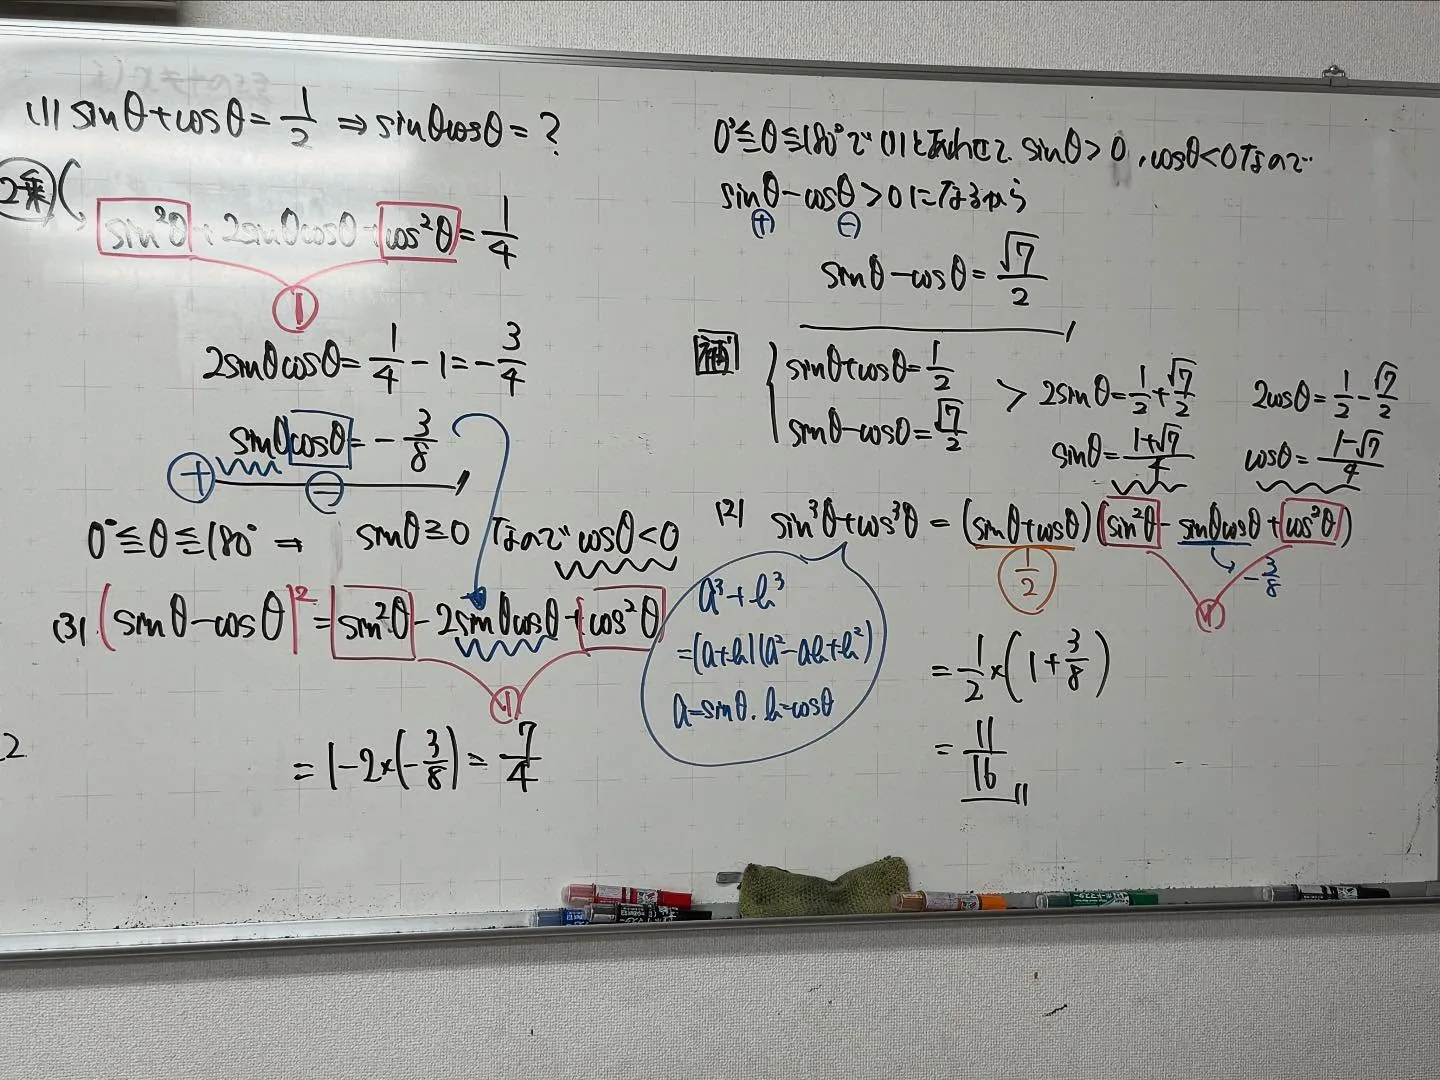 (1) sinθ+cosθ=1/2 ⇒ sinθcosθ=?
2乗
sin²θ+2sinθcosθ+cos²θ=1/4
1
2sinθcosθ=1/4-1=-3/4
sinθcosθ=-3/8
⊕ ⊖
0°≦θ≦180° → sinθ≧0 なので cosθ<0
(3) (sinθ-cosθ)²=sin²θ-2sinθcosθ+cos²θ
1
=1-2×(-3/8)=7/4
2
0°≦θ≦180°で(1)とあわせて sinθ>0, cosθ<0なので
sinθ-cosθ>0になるから
⊕ ⊖
sinθ-cosθ=√7/2
補 { sinθ+cosθ=1/2
sinθ-cosθ=√7/2
> 2sinθ=1/2+√7/2 2cosθ=1/2-√7/2
sinθ=1+√7/4 cosθ=1-√7/4
(2) sin³θ+cos³θ=(sinθ+cosθ)(sin²θ-sinθcosθ+cos²θ)
1/2 -3/8
1
a³+b³
=(a+b)(a²-ab+b²)
a=sinθ, b=cosθ
=1/2×(1+3/8)
=11/16